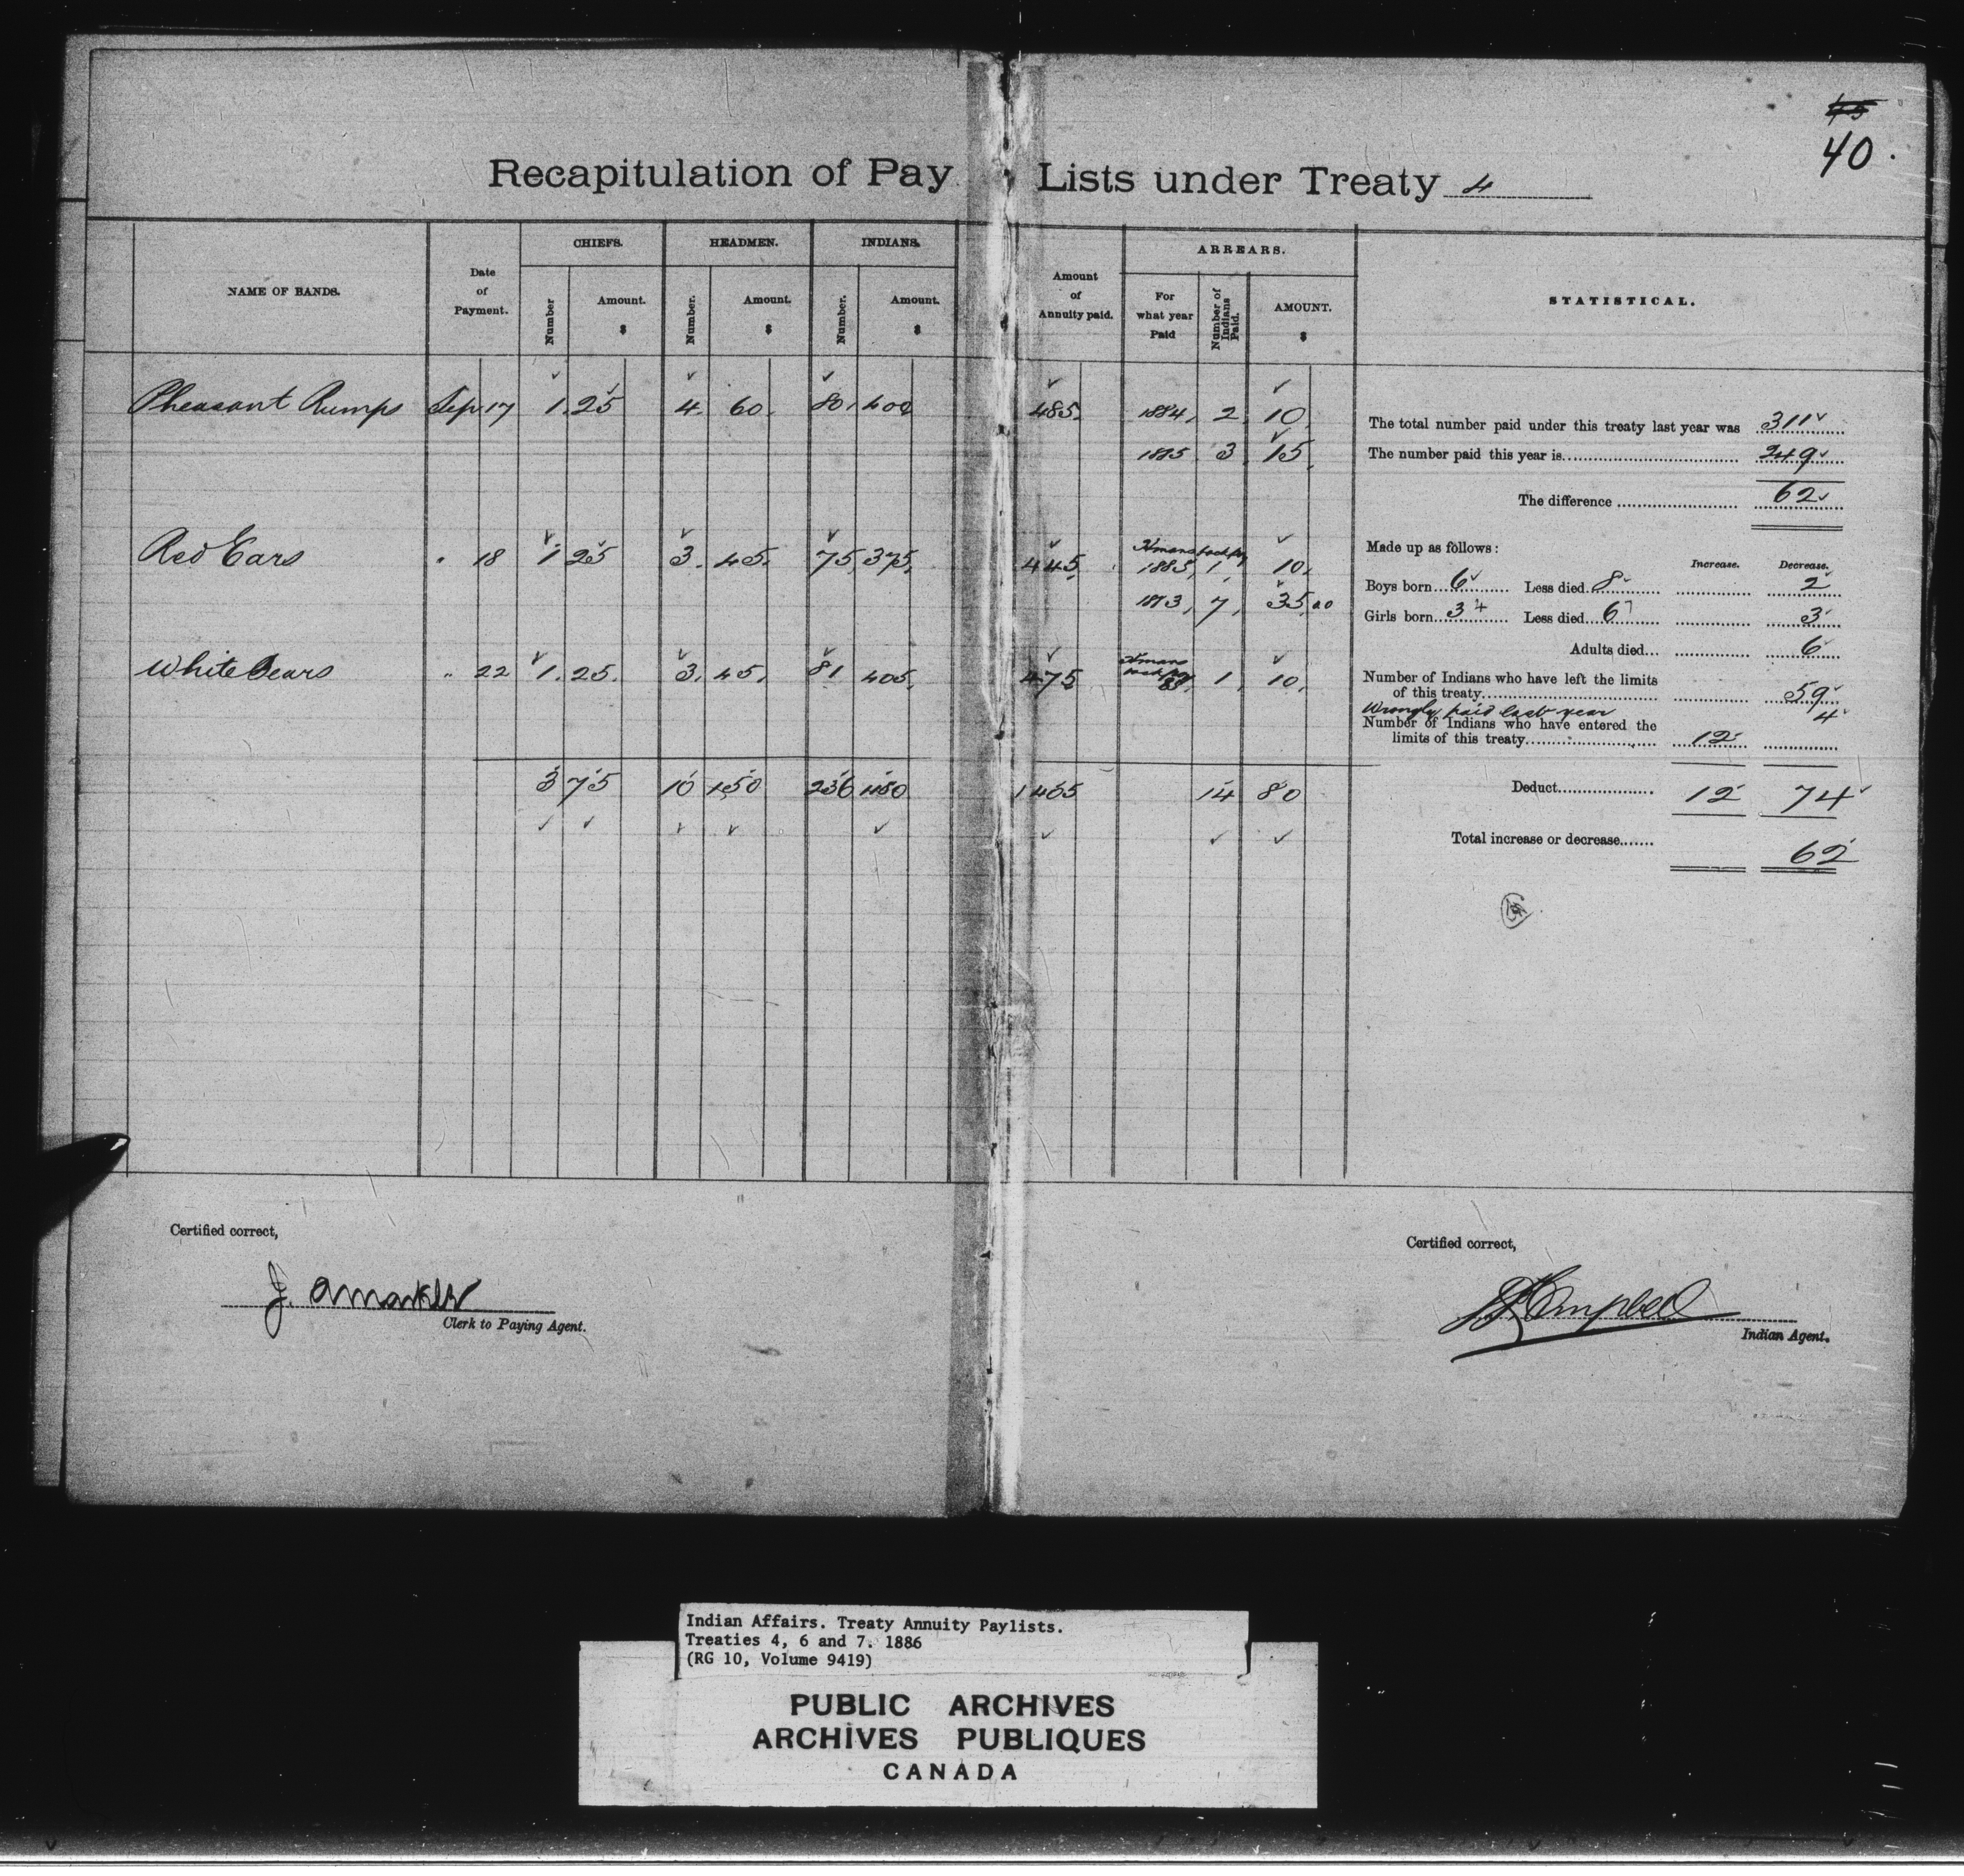 45
40.
Recapitulation of Pay Lists under Treaty 4
NAME OF BANDS.
Date of Payment.
CHIEFS.
Number
Amount. $
HEADMEN.
Number.
Amount. $
INDIANS.
Number.
Amount. $
Amount of Annuity paid.
ARREARS.
For what year Paid
Number of Indians Paid.
AMOUNT. $
STATISTICAL.
Pheasant Rumps Sep 17 1. 25 4. 60. 80. 400 485. 1884, 2 10.
1885 3 15.
Red Ears " 18 1 25 3. 45. 75, 375, 445. Hmans back pay 1885, 1, 10.
1873, 7, 35.00
White Bears " 22 1. 25. 3, 45. 81 405. 475 Hmans back pay 85. 1, 10.
3 75 10 150 236 1180 1405 14 80
The total number paid under this treaty last year was 311
The number paid this year is 249
The difference 62
Made up as follows:
Increase. Decrease.
Boys born 6 Less died 8 2
Girls born 3 Less died 6 3
Adults died... 6
Number of Indians who have left the limits
of this treaty 59
Wrongly paid last year 4
Number of Indians who have entered the
limits of this treaty 12
Deduct 12 74
Total increase or decrease 62
Certified correct,
Clerk to Paying Agent.
Certified correct,
Campbell
Indian Agent.
Indian Affairs. Treaty Annuity Paylists.
Treaties 4, 6 and 7. 1886
(RG 10, Volume 9419)
PUBLIC ARCHIVES
ARCHIVES PUBLIQUES
CANADA